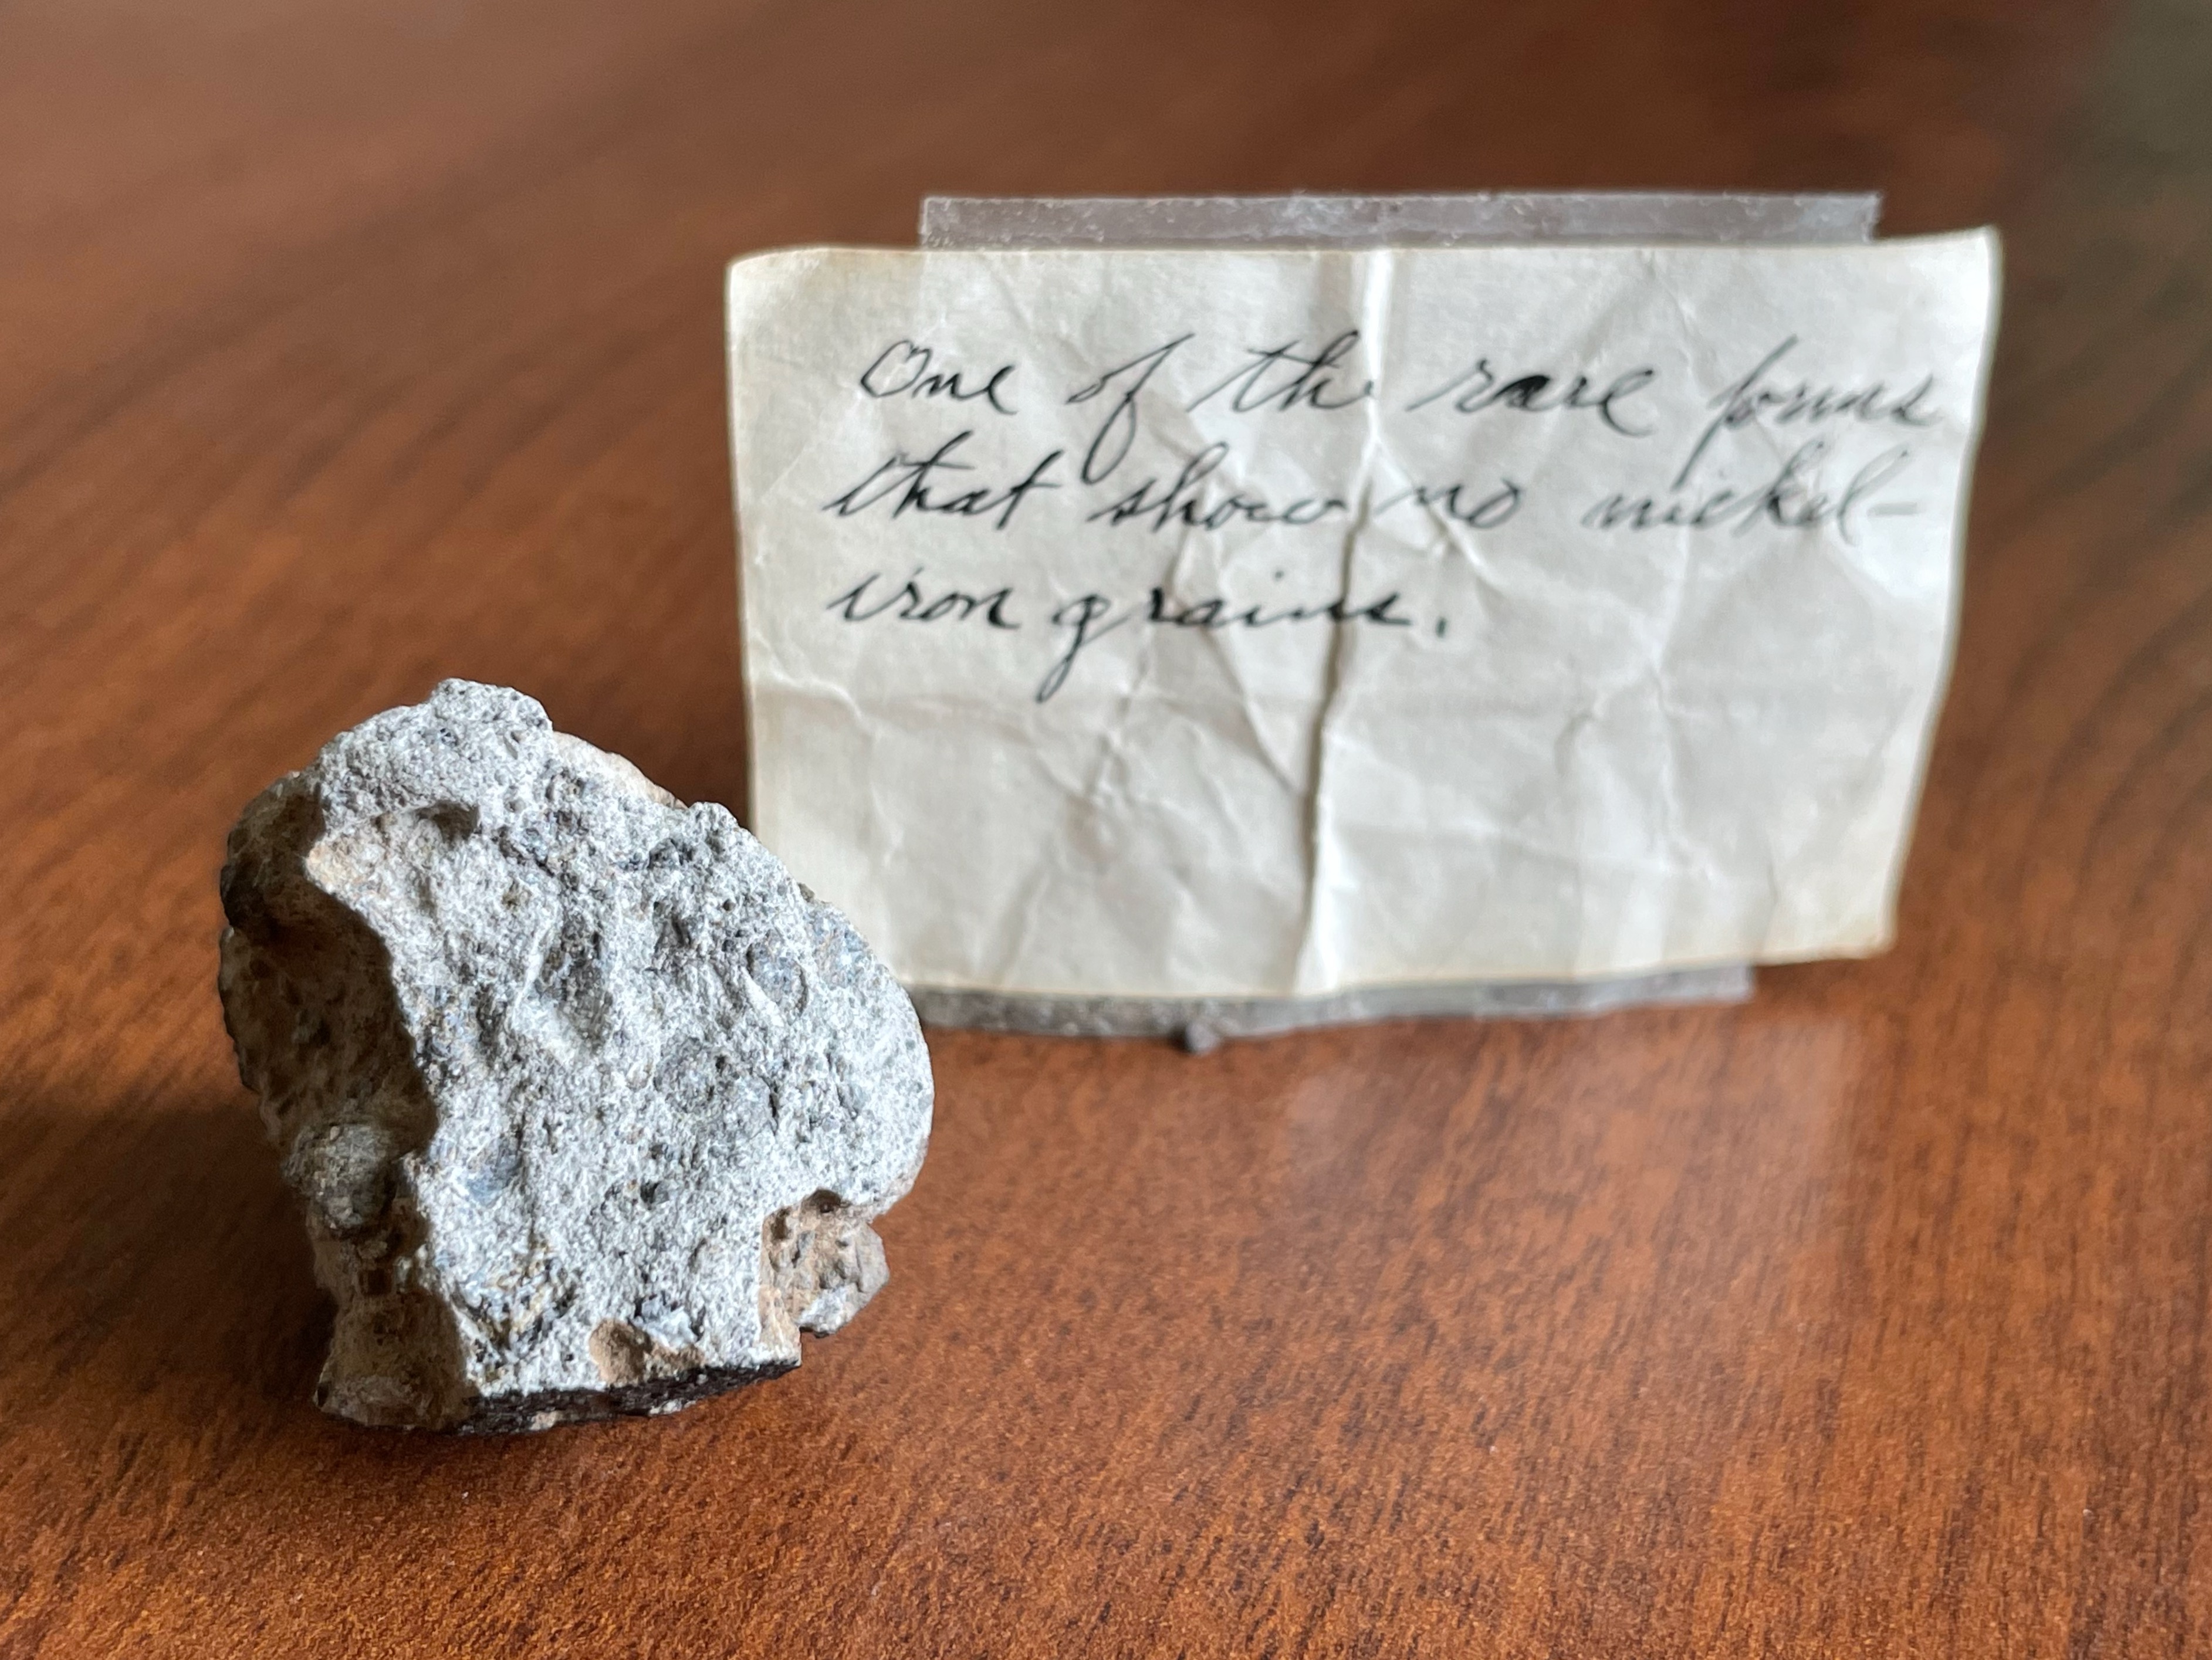 One of the rare forms
that show no nickel-
iron grains.